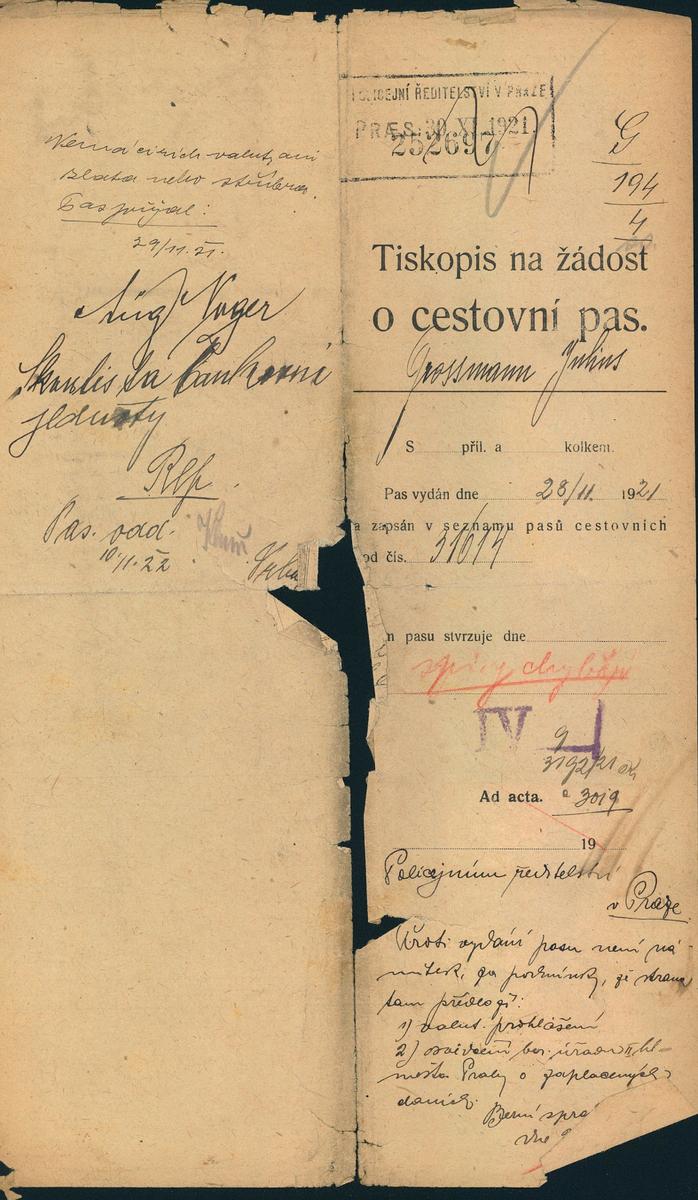 Nemá cizích valut, ani
zlata nebo stříbra.
Pas přijal:
29/11.21.
jednoty
Pas. odd.
10./11.22
POLICEJNÍ ŘEDITELSTVÍ V PRAZE
PRÆS. 30 XI. 1921.
252697
G
194
4
Tiskopis na žádost
o cestovní pas.
Grossmann Julius
S příl. a kolkem.
Pas vydán dne 28/11. 1921
a zapsán v seznamu pasů cestovních
od čís. 31614
n pasu stvrzuje dne
spisy chybějí
IV
9
3192/21
Ad acta. 3019
19
Policejnímu ředitelství
v Praze.
Proti vydání pasu není ná-
mitek, za podmínky, že strana
tam předloží:
1) valut. prohlášení
2) osvědčení ber. úřadu hl.
města Prahy o zaplacených
daních.
Berní sprá
dne